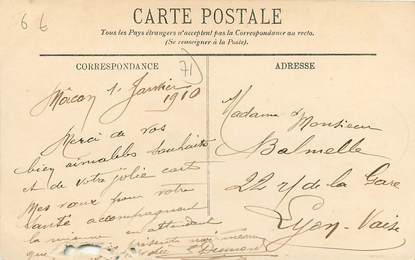 6 6
CARTE POSTALE
Tous les Pays étrangers n'acceptent pas la Correspondance au recto.
(Se renseigner à la Poste).
CORRESPONDANCE
71
Mâcon 1. Janvier
1910
Merci de vos
bien aimables souhaits
et de votre jolie cart
Mes vœux pour votre
santé accompagnent
la mienne en attendant
que
ADRESSE
Madame & Monsieur
Balmelle
22 r de la Gare
Lyon-Vaise